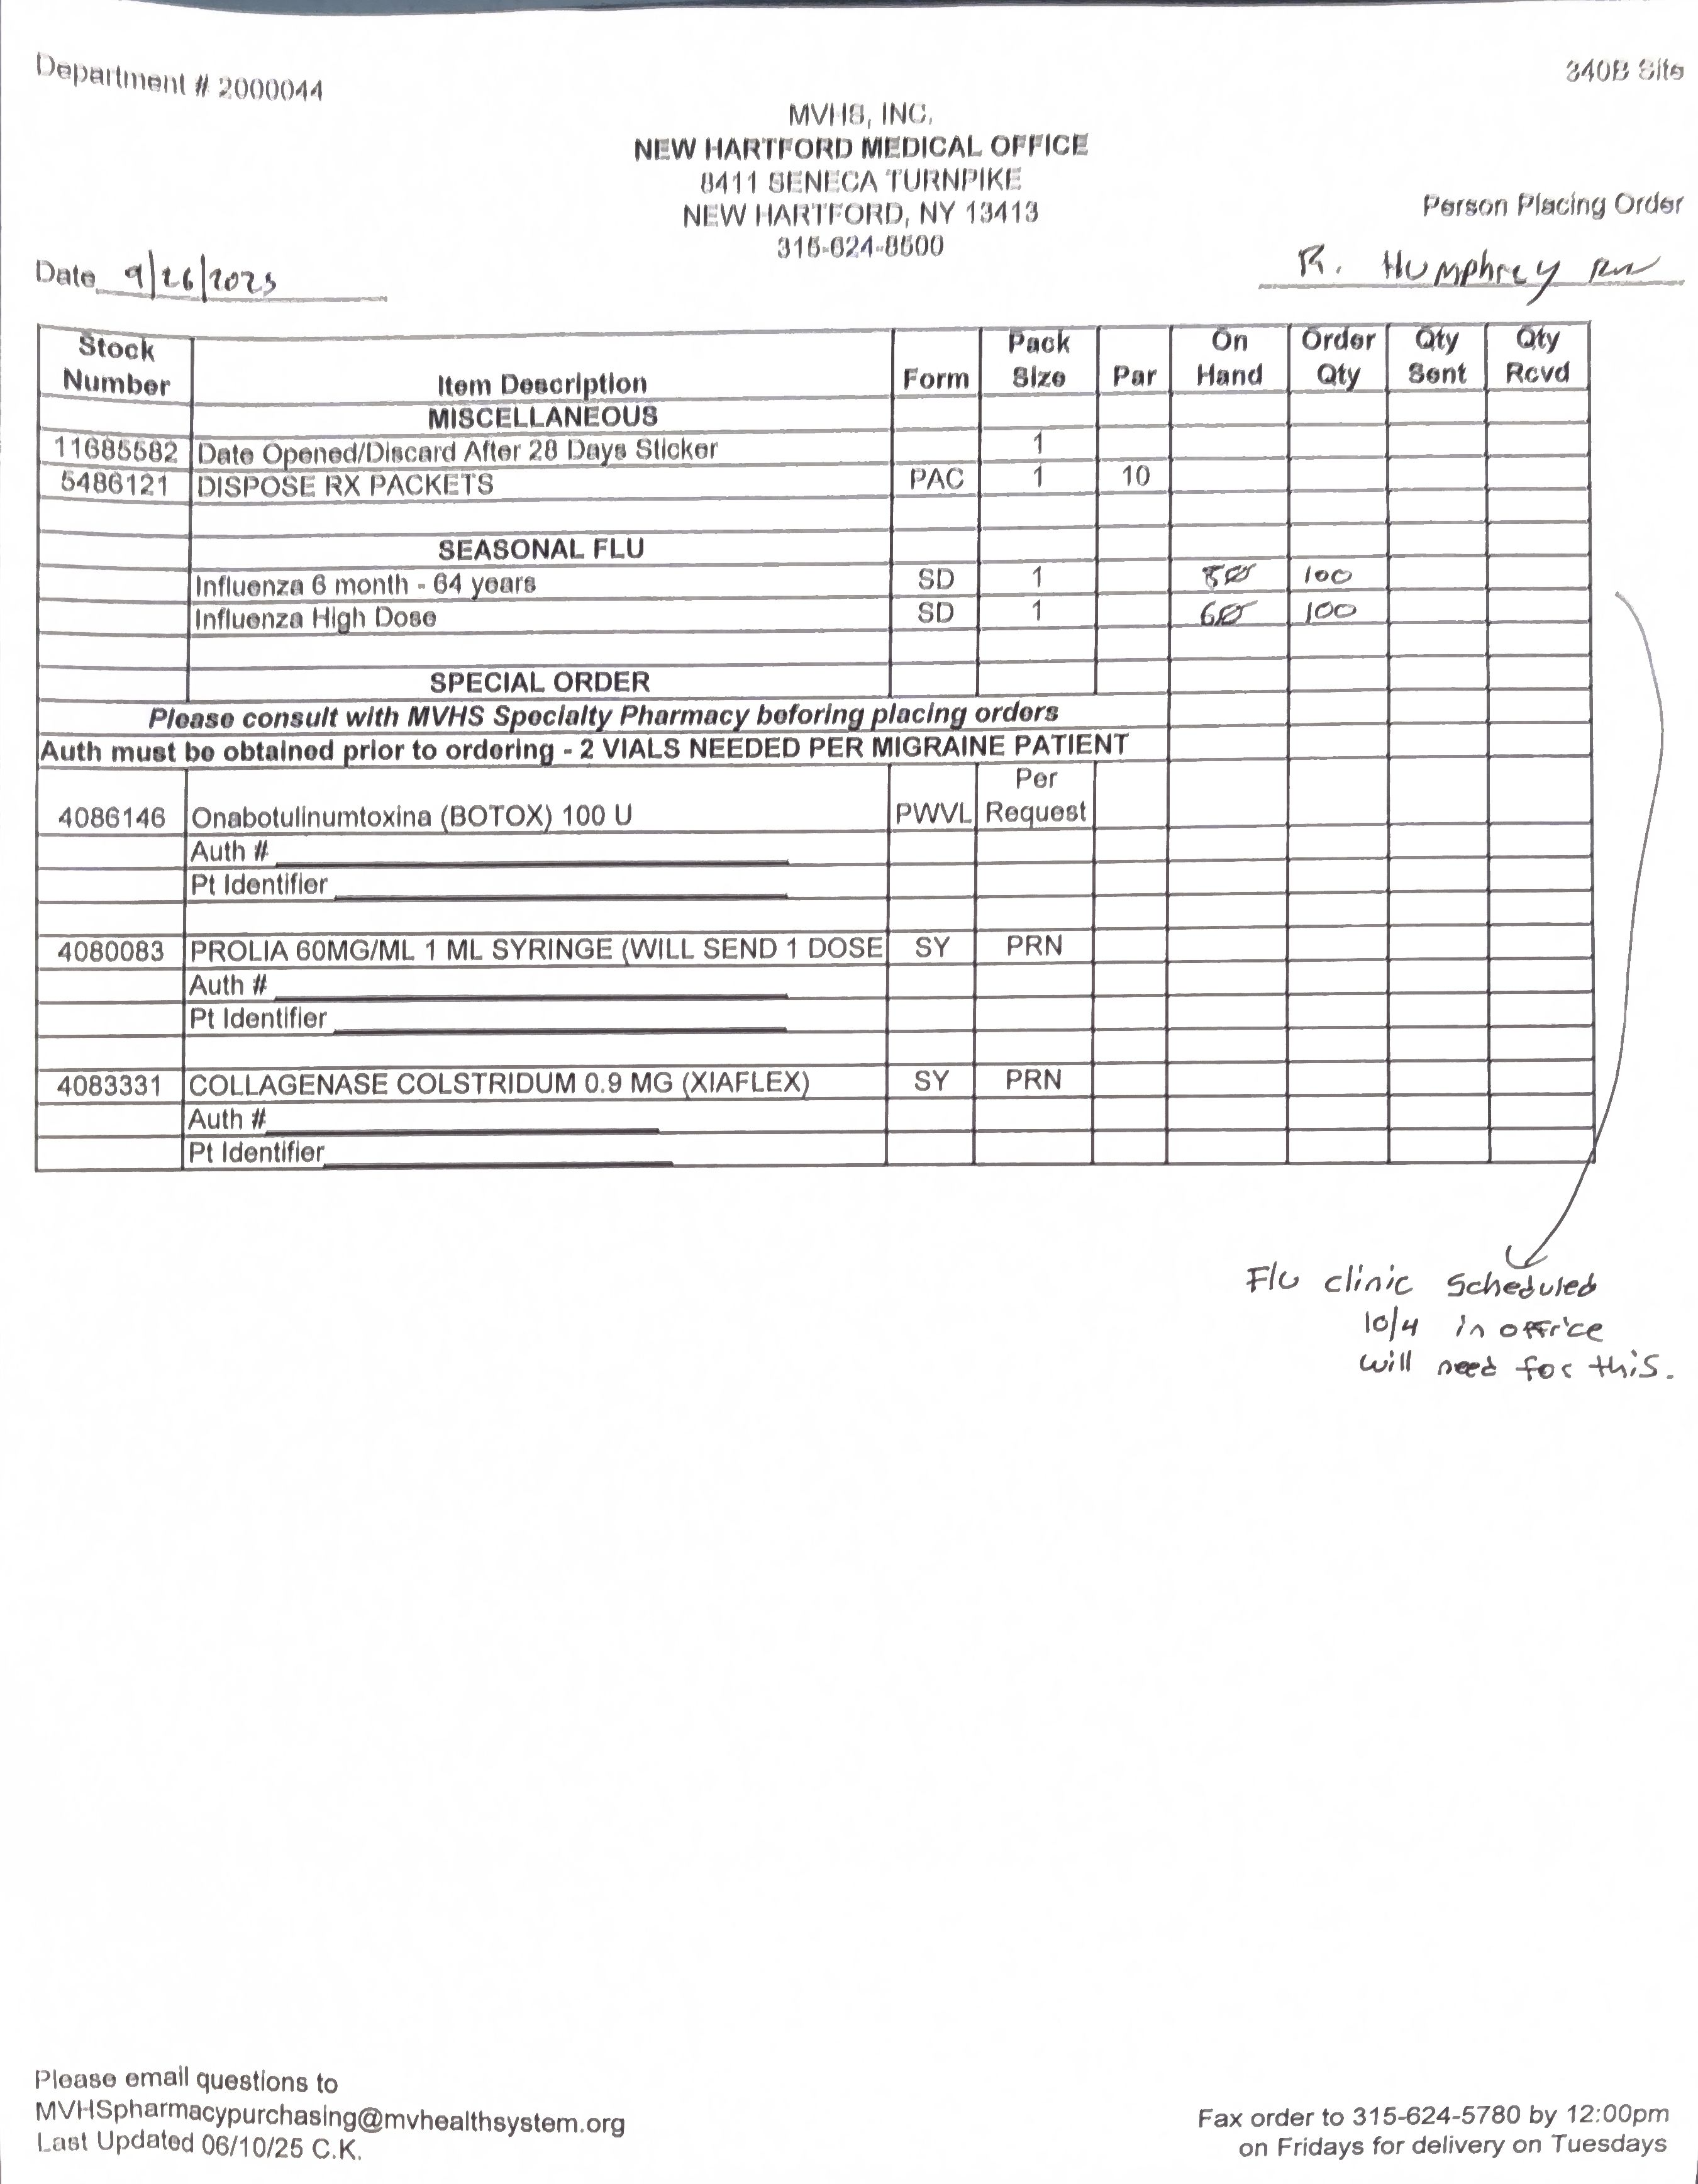 Department # 2000044
340B Site
MVHS, INC.
NEW HARTFORD MEDICAL OFFICE
8411 SENECA TURNPIKE
NEW HARTFORD, NY 13413
315-624-8500
Person Placing Order
R. Humphrey RN
Date 9/26/2025
Stock Number Item Description Form Pack Size Par On Hand Order Qty Qty Sent Qty Rcvd
MISCELLANEOUS
11685582 Date Opened/Discard After 28 Days Sticker 1
5486121 DISPOSE RX PACKETS PAC 1 10
SEASONAL FLU
Influenza 6 month - 64 years SD 1 100
Influenza High Dose SD 1 60 100
SPECIAL ORDER
Please consult with MVHS Specialty Pharmacy beforing placing orders
Auth must be obtained prior to ordering - 2 VIALS NEEDED PER MIGRAINE PATIENT
4086146 Onabotulinumtoxina (BOTOX) 100 U PWVL Per Request
Auth #
Pt Identifier
4080083 PROLIA 60MG/ML 1 ML SYRINGE (WILL SEND 1 DOSE SY PRN
Auth #
Pt Identifier
4083331 COLLAGENASE COLSTRIDUM 0.9 MG (XIAFLEX) SY PRN
Auth #
Pt Identifier
Flu clinic scheduled
10/4 in office
will need for this.
Please email questions to
MVHSpharmacypurchasing@mvhealthsystem.org
Last Updated 06/10/25 C.K.
Fax order to 315-624-5780 by 12:00pm
on Fridays for delivery on Tuesdays